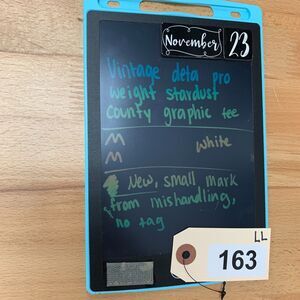 November 23
Vintage delta pro
weight stardust
county graphic tee
M white
M
New, small mark
from mishandling,
no tag
LL
163